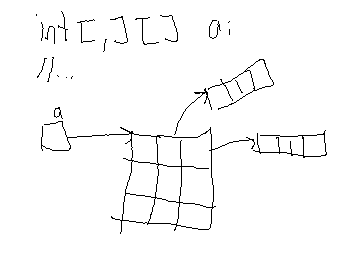 int[,][] a;
//...
a